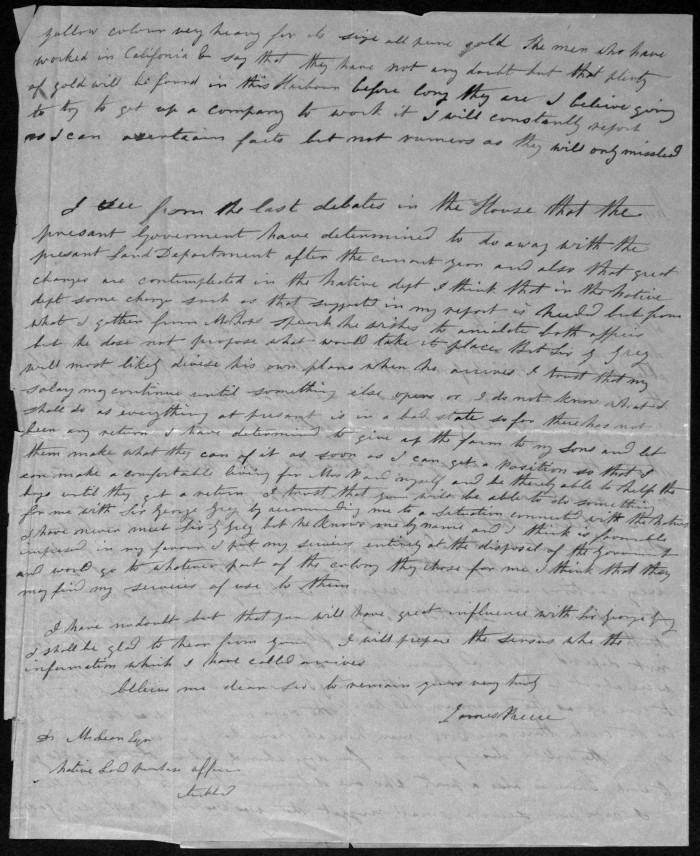 yellow colour very heavy for its size all pure gold The men who have
worked in Califonia & say that they have not any doubt but that plenty
of gold will be found in this Harbour before long they are I beleive going
to try to get up a company to work it I will constantly report
as I can facts but not rumors as they will only misslead
I see from the last debates in the House that the
presant Goverment have determined to do away with the
presant Land Department after the currant year and also that great
changes are contemplected in the Native dept I think that in the Native
dept some change such as that suggested in my report is needed but from
what I gather from speech he wishes to both offices
but he dose not propose what would take its place But Sir G Grey
will most likely divise his own plans when he arrives I trust that my
salary may continue until something else opens or I do not know what I
shall do as everything at present is in a bad state so far there has not
been any return I have determined to give up the farm to my sons and let
them make what they can of it as soon as I can get a Position so that I
can make a comfortable living for Mrs P and myself and be thereby able to help the
boys until they get a return I trust that you will be able to do something
for me with Sir George Grey by recomending me to a situation connected with the Natives
I have never meet Sir G Grey but he knows me by name and I think is favourable
impressed in my favour I put my services entirely at the disposal of the Goverment
and would go to whatever part of the colony they chose for me I think that they
may find my services of use to them
I have no doubt but that you will have great influence with Sir George Grey
I shall be glad to hear from you I will prepare the sensus whe the
information which I have called arrives
beleive me dear Sir to remain yours very truly
James Preece
D. McLean Esqr
Native Land Purchase office
Auckld